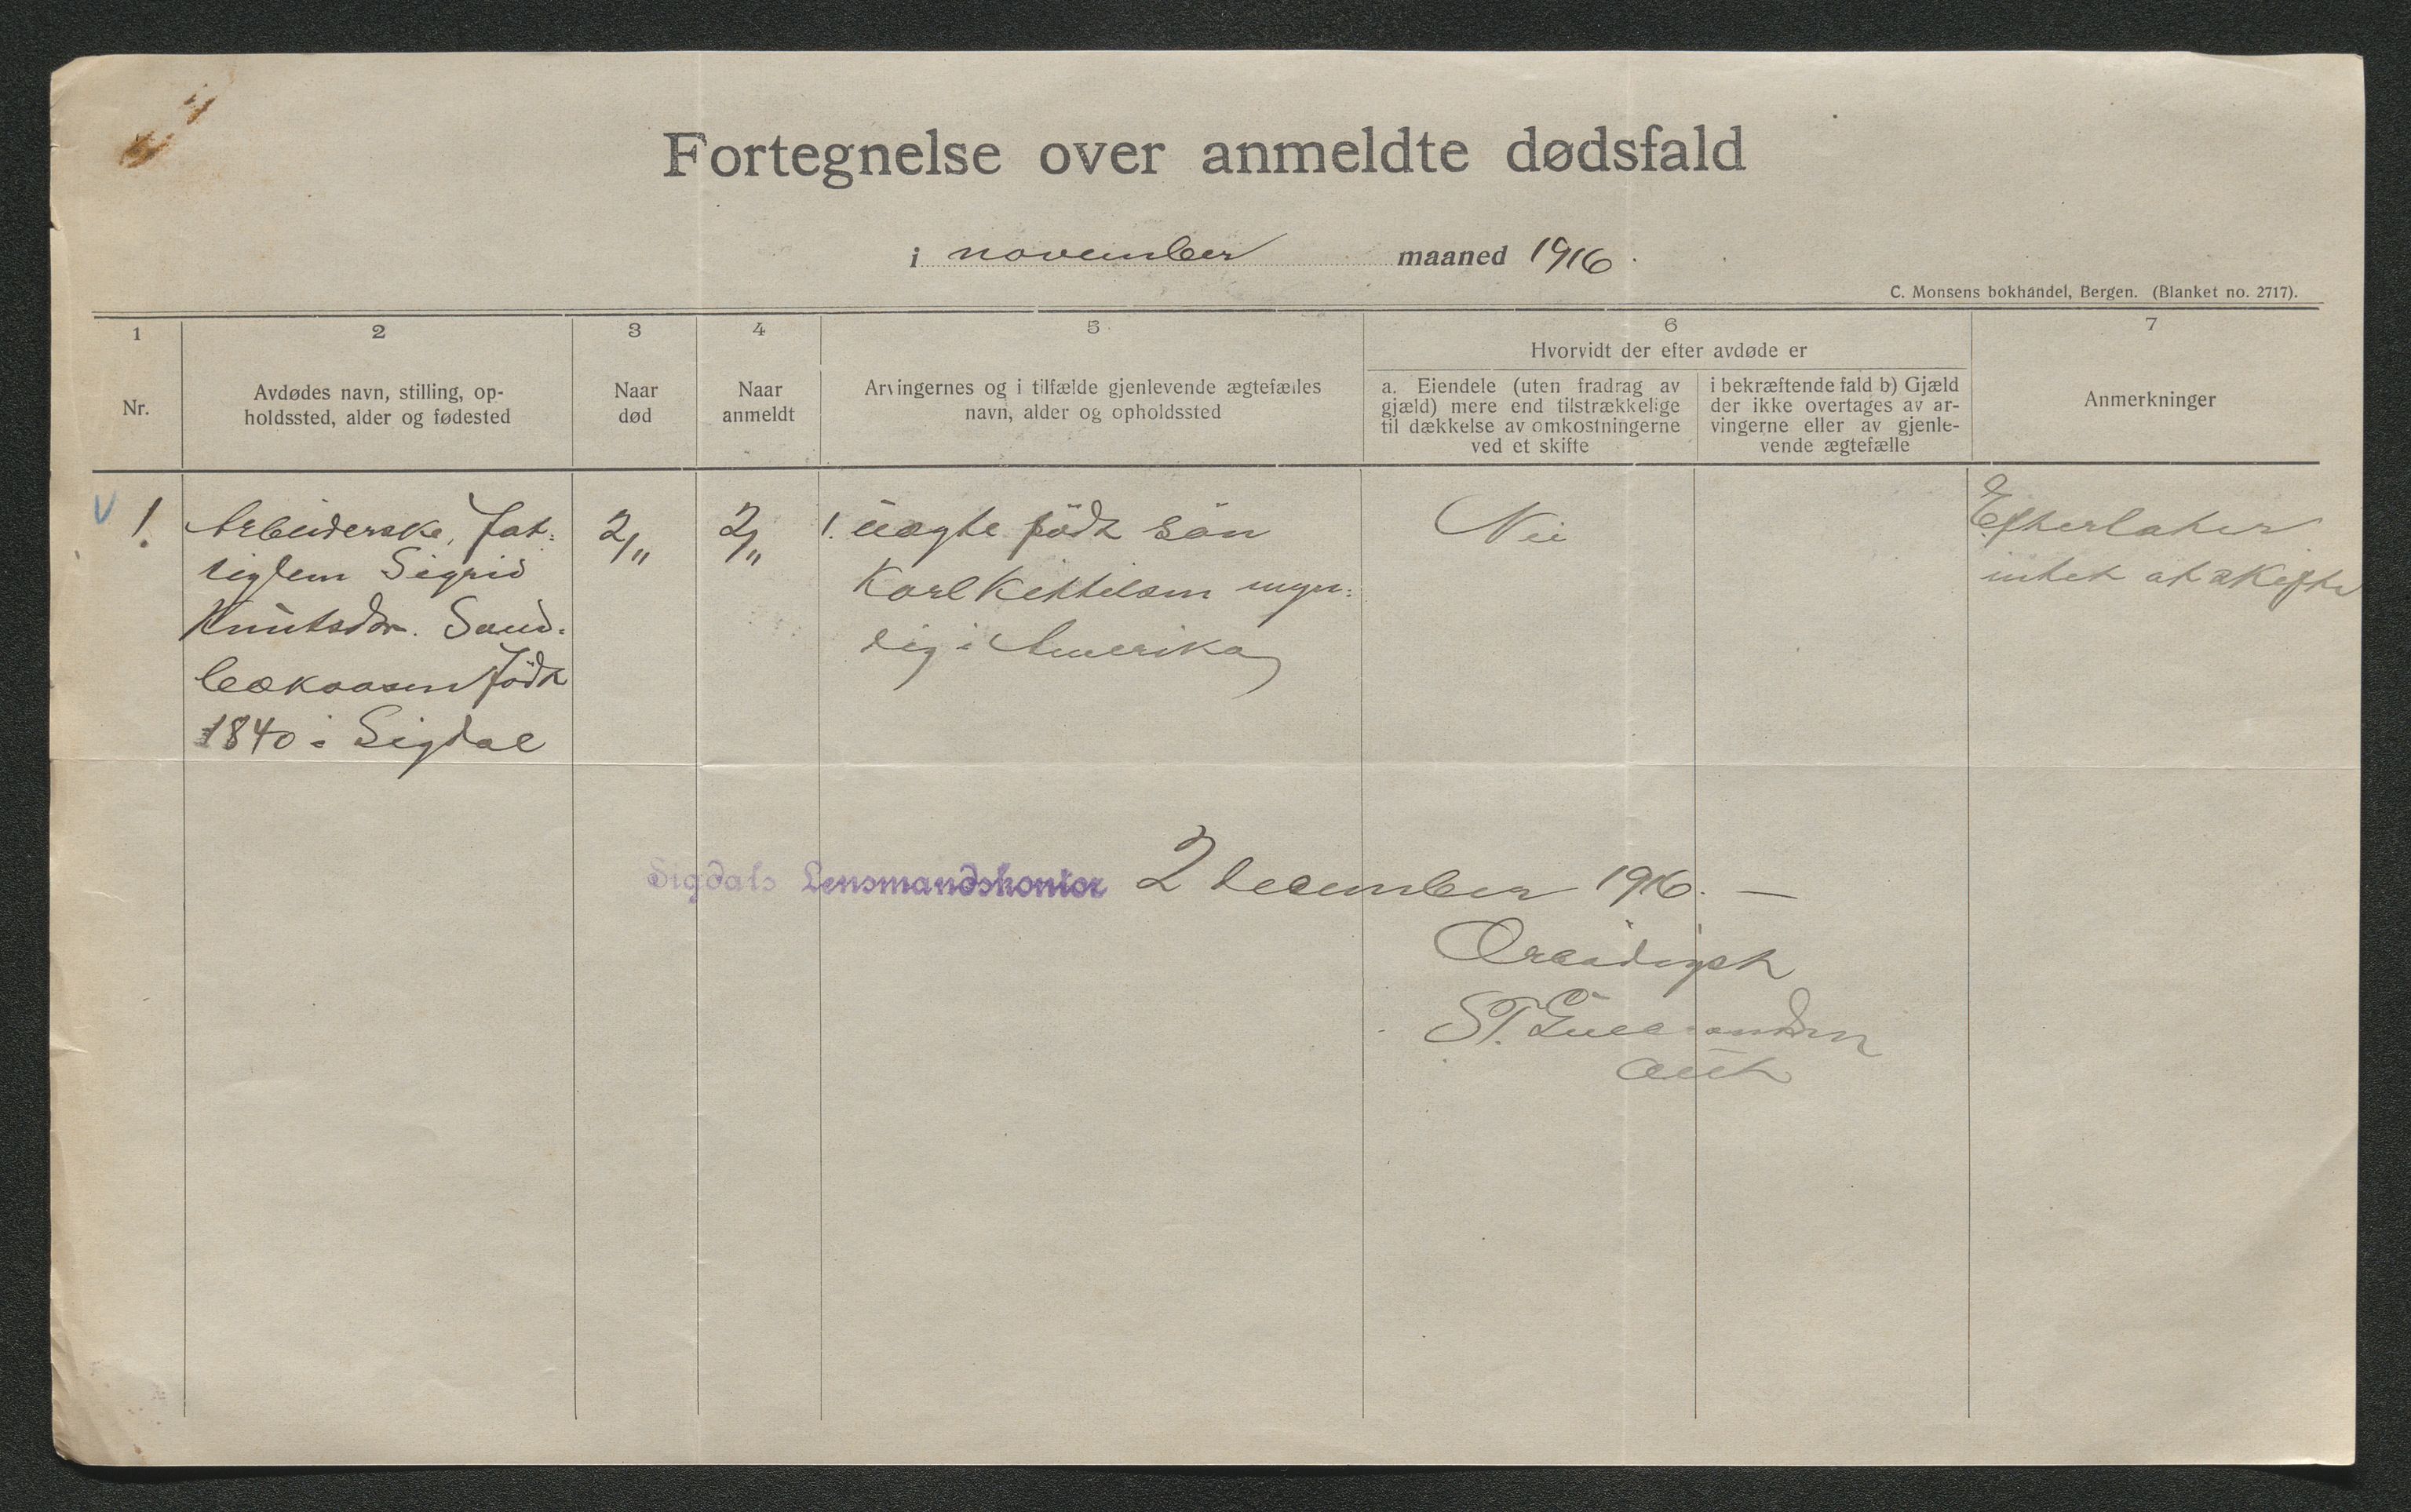 Fortegnelse over anmeldte dødsfald
i november maaned 1916.
C. Monsens bokhandel, Bergen. (Blanket no. 2717).
1
Nr.
2
Avdødes navn, stilling, op-
holdssted, alder og fødested
3
Naar
død
4
Naar
anmeldt
5
Arvingernes og i tilfælde gjenlevende ægtefælles
navn, alder og opholdssted
6
Hvorvidt der efter avdøde er
a. Eiendele (uten fradrag av
gjæld) mere end tilstrækkelige
til dækkelse av omkostningerne
ved et skifte
i bekræftende fald b) Gjæld
der ikke overtages av ar-
vingerne eller av gjenle-
vende ægtefælle
7
Anmerkninger
V 1.
Arbeiderske, fat-
tiglem Sigrid
Knutsdtr. Sand-
bækaasen født
1840 i Sigdal
2/11
2/11
1. uægte født søn
Karl Kittilsen myn-
dig i Amerika
Nei
Efterlater
intet at skifte
Sigdals Lensmandskontor 2 december 1916. —
Ærbødigst